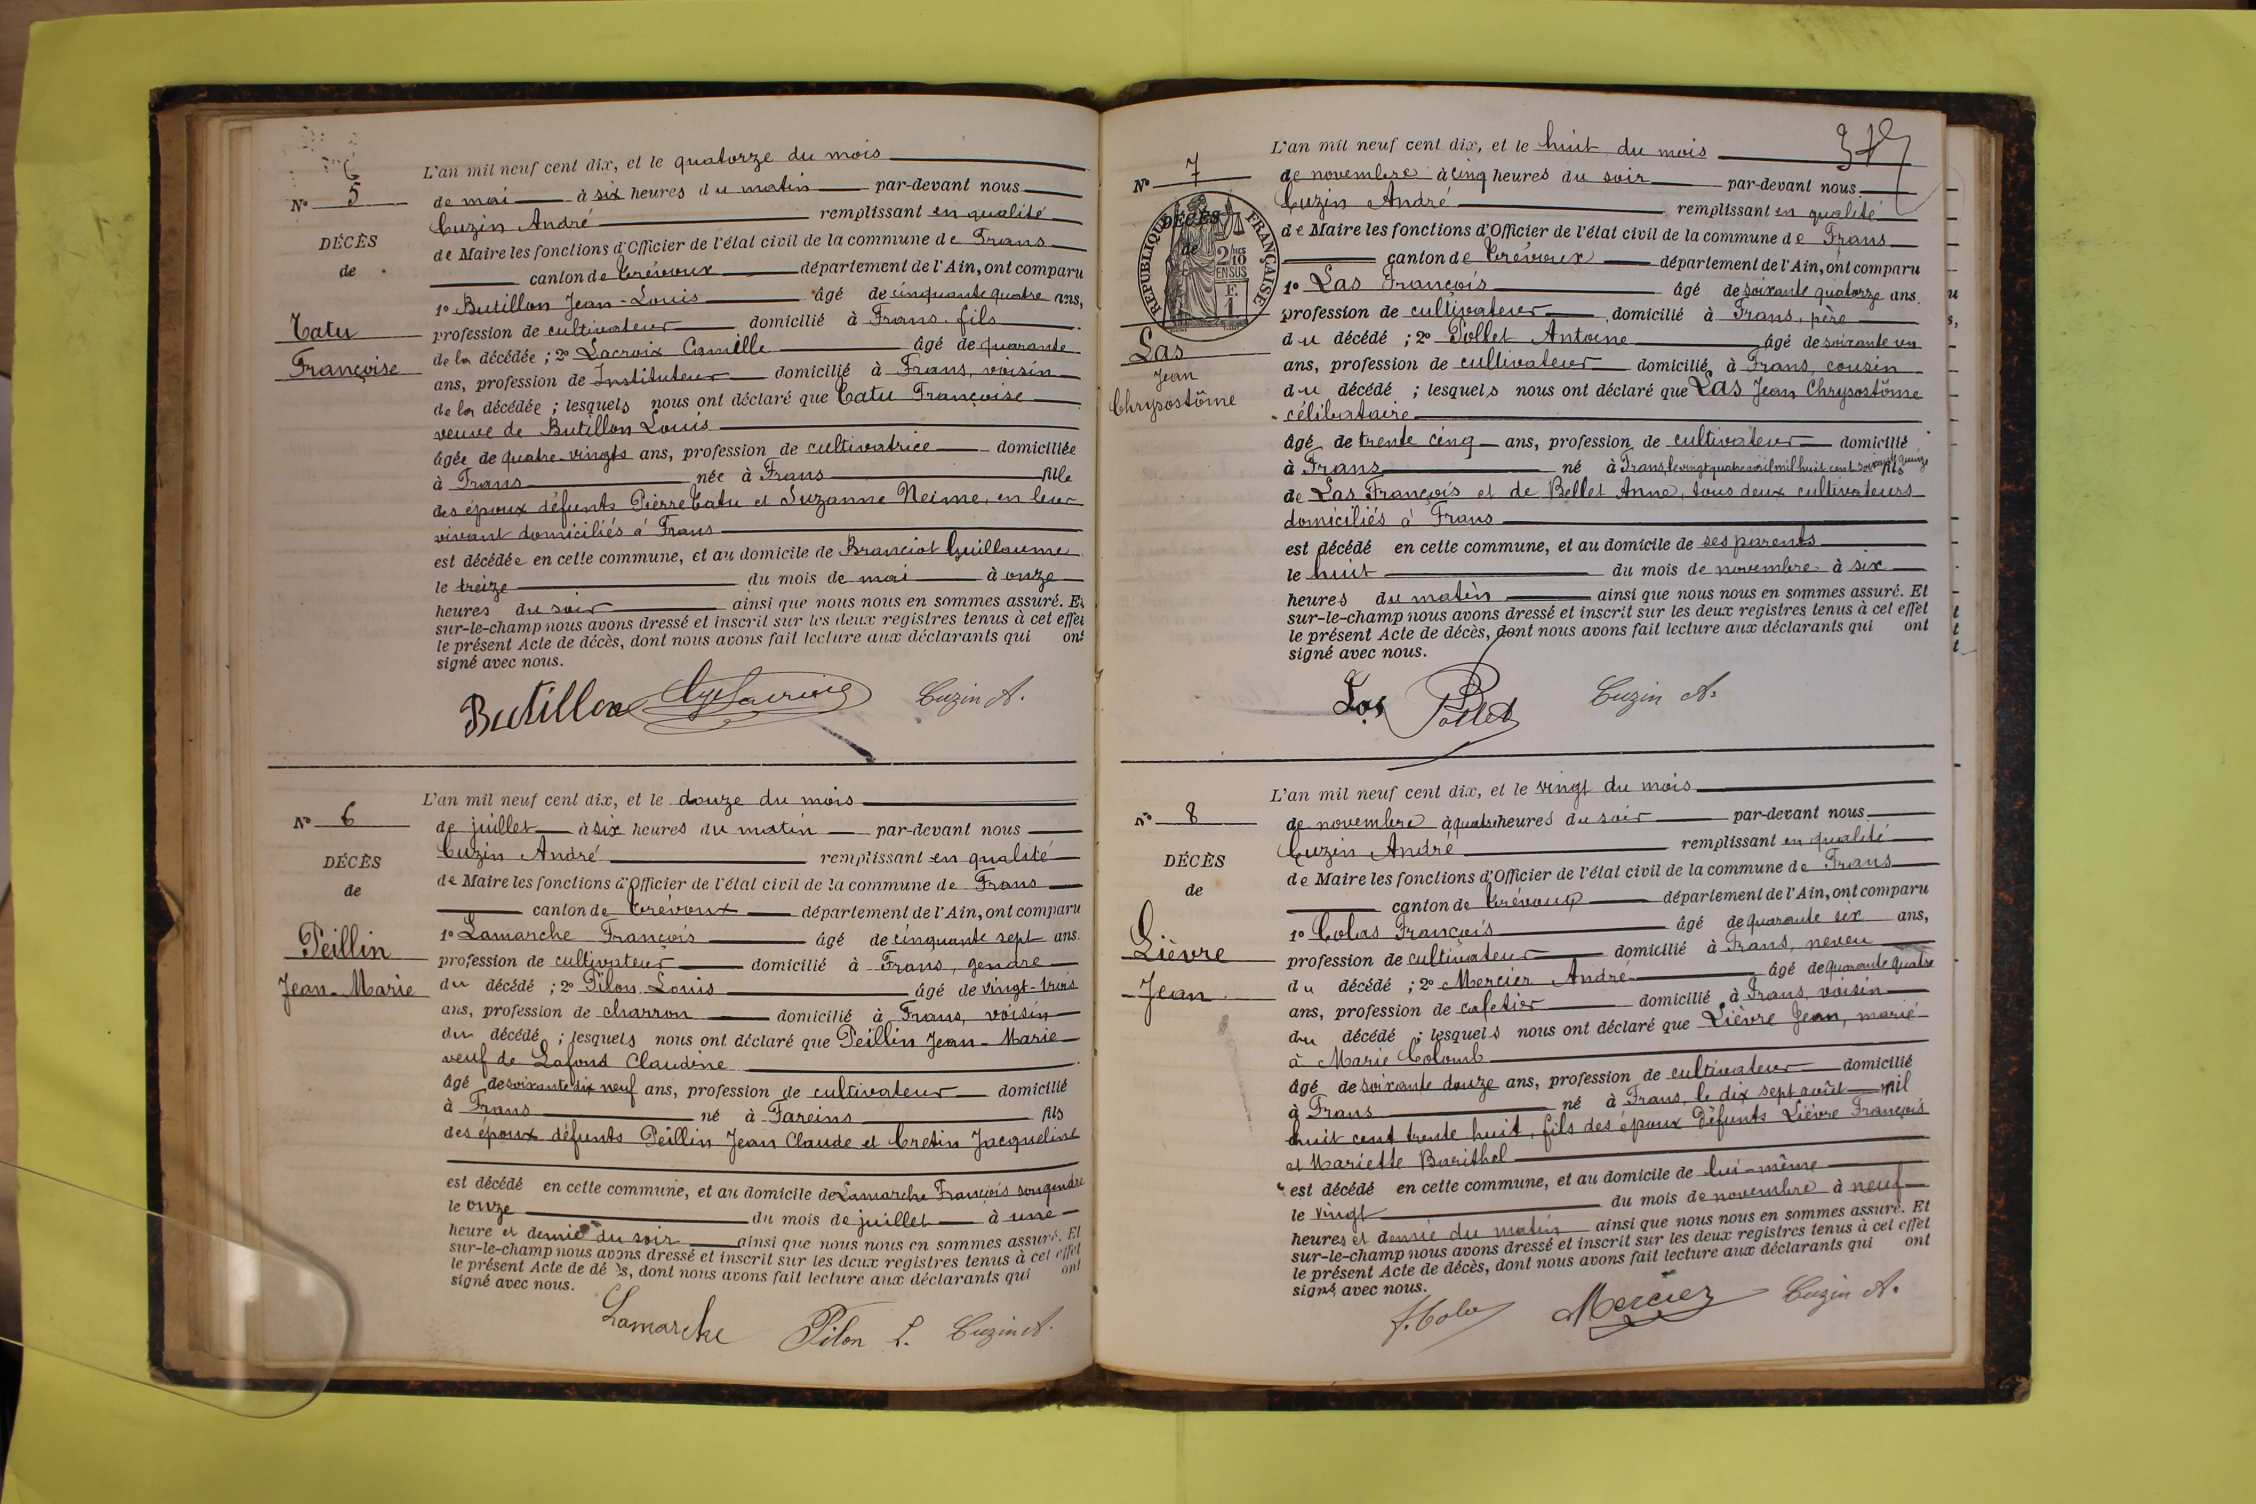 6
Nº 5
DÉCÈS
de
Tatu
Françoise
L'an mil neuf cent dix, et le quatorze du mois
de mai à six heures du matin par-devant nous
Cuzin André remplissant en qualité
de Maire les fonctions d'Officier de l'état civil de la commune de Frans
canton de Trévoux département de l'Ain, ont comparu
1º Butillon Jean-Louis âgé de cinquante quatre ans,
profession de cultivateur domicilié à Frans, fils
de la décédée ; 2º Lacroix Camille âgé de quarante
ans, profession de Instituteur domicilié à Frans, voisin
de la décédée ; lesquels nous ont déclaré que Tatu Françoise
veuve de Butillon Louis
âgée de quatre-vingts ans, profession de cultivatrice domiciliée
à Frans née à Frans fille
des époux défunts Pierre Tatu et Suzanne Neime, en leur
vivant domiciliés à Frans
est décédée en cette commune, et au domicile de Branciat Guillaume
le treize du mois de mai à onze
heures du soir ainsi que nous nous en sommes assuré. Et
sur-le-champ nous avons dressé et inscrit sur les deux registres tenus à cet effet
le présent Acte de décès, dont nous avons fait lecture aux déclarants qui ont
signé avec nous.
Butillon Lacroix Cuzin A.
Nº 6
DÉCÈS
de
Peillin
Jean-Marie
L'an mil neuf cent dix, et le douze du mois
de juillet à six heures du matin par-devant nous
Cuzin André remplissant en qualité
de Maire les fonctions d'Officier de l'état civil de la commune de Frans
canton de Trévoux département de l'Ain, ont comparu
1º Lamarche François âgé de cinquante sept ans.
profession de cultivateur domicilié à Frans, gendre
du décédé ; 2º Pilon Louis âgé de vingt-trois
ans, profession de charron domicilié à Frans, voisin
du décédé ; lesquels nous ont déclaré que Peillin Jean-Marie
veuf de Lafond Claudine
âgé de soixante dix neuf ans, profession de cultivateur domicilié
à Frans né à Fareins fils
des époux défunts Peillin Jean Claude et Cretin Jacqueline
est décédé en cette commune, et au domicile de Lamarche François son gendre
le onze du mois de juillet à une
heure et demie du soir ainsi que nous nous en sommes assuré. Et
sur-le-champ nous avons dressé et inscrit sur les deux registres tenus à cet effet
le présent Acte de décès, dont nous avons fait lecture aux déclarants qui ont
signé avec nous.
Lamarche Pilon L. Cuzin A.
Nº 7
DÉCÈS
de
RÉPUBLIQUE FRANÇAISE
2/10
EN SUS
F.
1
Las
Jean
Chrysostôme
L'an mil neuf cent dix, et le huit du mois
de novembre à cinq heures du soir par-devant nous
Cuzin André remplissant en qualité
de Maire les fonctions d'Officier de l'état civil de la commune de Frans
canton de Trévoux département de l'Ain, ont comparu
1º Las François âgé de soixante quatorze ans.
profession de cultivateur domicilié à Frans, père
du décédé ; 2º Pollet Antoine âgé de soixante un
ans, profession de cultivateur domicilié à Frans, cousin
du décédé ; lesquels nous ont déclaré que Las Jean Chrysostôme
célibataire
âgé de trente cinq ans, profession de cultivateur domicilié
à Frans né à Frans, le vingt quatre avril mil huit cent soixante quinze fils
de Las François et de Bellet Anne, tous deux cultivateurs
domiciliés à Frans
est décédé en cette commune, et au domicile de ses parents
le huit du mois de novembre à six
heures du matin ainsi que nous nous en sommes assuré. Et
sur-le-champ nous avons dressé et inscrit sur les deux registres tenus à cet effet
le présent Acte de décès, dont nous avons fait lecture aux déclarants qui ont
signé avec nous.
Las Pollet Cuzin A.
Nº 8
DÉCÈS
de
Lièvre
Jean
L'an mil neuf cent dix, et le vingt du mois
de novembre à quatre heures du soir par-devant nous
Cuzin André remplissant en qualité
de Maire les fonctions d'Officier de l'état civil de la commune de Frans
canton de Trévoux département de l'Ain, ont comparu
1º Colas François âgé de quarante six ans,
profession de cultivateur domicilié à Frans, neveu
du décédé ; 2º Mercier André âgé de quarante quatre
ans, profession de cafetier domicilié à Frans, voisin
du décédé ; lesquels nous ont déclaré que Lièvre Jean, marié
à Marie Colomb
âgé de soixante douze ans, profession de cultivateur domicilié
à Frans né à Frans, le dix sept août mil
huit cent trente huit, fils des époux défunts Lièvre François
et Mariette Burithel
est décédé en cette commune, et au domicile de lui-même
le vingt du mois de novembre à neuf
heures et demie du matin ainsi que nous nous en sommes assuré. Et
sur-le-champ nous avons dressé et inscrit sur les deux registres tenus à cet effet
le présent Acte de décès, dont nous avons fait lecture aux déclarants qui ont
signé avec nous.
F. Colas Mercier Cuzin A.